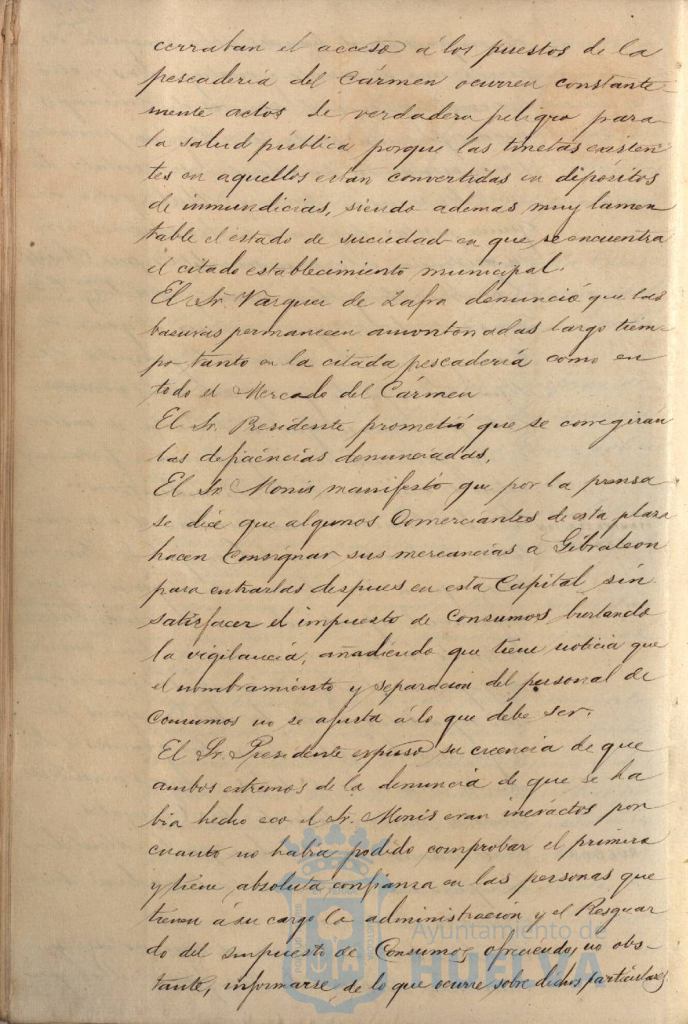 cerraban el acceso á los puestos de la
pescaderia del Cármen ocurren constante-
mente actos de verdadero peligro para
la salud pública porque las existen
tes en aquellos están convertidas en depósitos
de inmundicias, siendo ademas muy lamen
table el estado de suciedad en que se encuentra
el citado establecimiento municipal.
El Sr. Vazquez de Zafra denunció que las
basuras permanecen amontonadas largo tiem-
po tanto en la citada pescadería como en
todo el Mercado del Cármen
El Sr. Presidente prometió que se corregiran
las deficiencias denunciadas.
El Sr Monis manifestó que por la prensa
se dice que algunos Comerciantes de esta plaza
hacen consignar sus mercancias á Gibraleon
para entrarlas despues en esta Capital sin
satisfacer el impuesto de Consumos burlando
la vigilancia, añadiendo que tiene noticia que
el nombramiento y separacion del personal de
Consumos no se ajusta á lo que debe ser.
El Sr. Presidente expuso su creencia de que
ambos extremos de la denuncia de que se ha
bia hecho eco el Sr. Monis eran inexactos por
cuanto no habia podido comprobar el primero
y tiene absoluta confianza en las personas que
tienen á su cargo la administración y el Resguar
do del impuesto de Consumos, ofreciendo, no obs-
tante, informarse de lo que ocurre sobre dichos particulares.
Ayuntamiento de
HUELVA